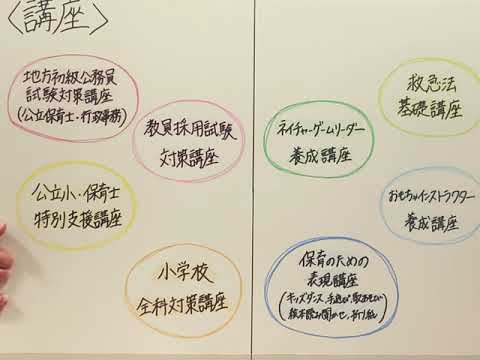 〈講座〉
地方初級公務員
試験対策講座
(公立保育士・行政事務)
教員採用試験
対策講座
公立小・保育士
特別支援講座
小学校
全科対策講座
救急法
基礎講座
ネイチャーゲームリーダー
養成講座
おもちゃインストラクター
養成講座
保育のための
表現講座
(キッズダンス、手遊び、
絵本読み聞かせ、折り紙)